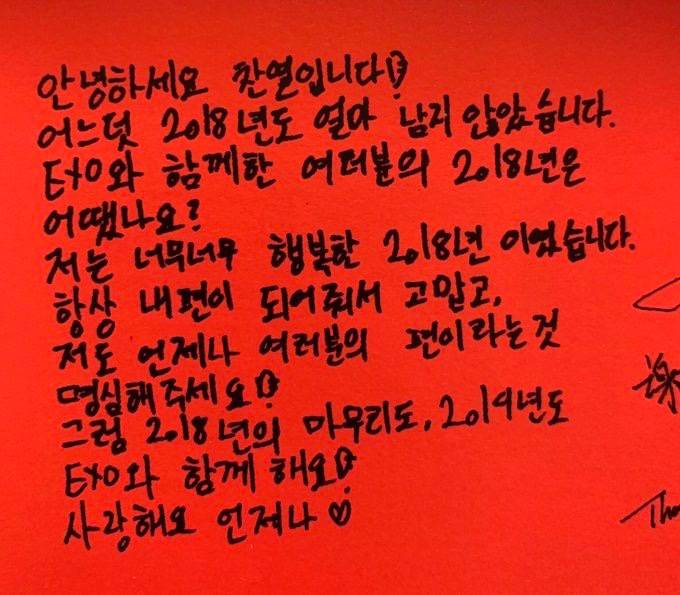 안녕하세요 찬열입니다!
어느덧 2018년도 얼마 남지 않았습니다.
EXO와 함께한 여러분의 2018년은
어땠나요?
저는 너무너무 행복한 2018년 이었습니다.
항상 내편이 되어줘서 고맙고,
저도 언제나 여러분의 편이라는것
명심해주세요!
그럼 2018년의 마무리도, 2019년도
EXO와 함께 해요!
사랑해요 언제나 ♡
謝
Tha